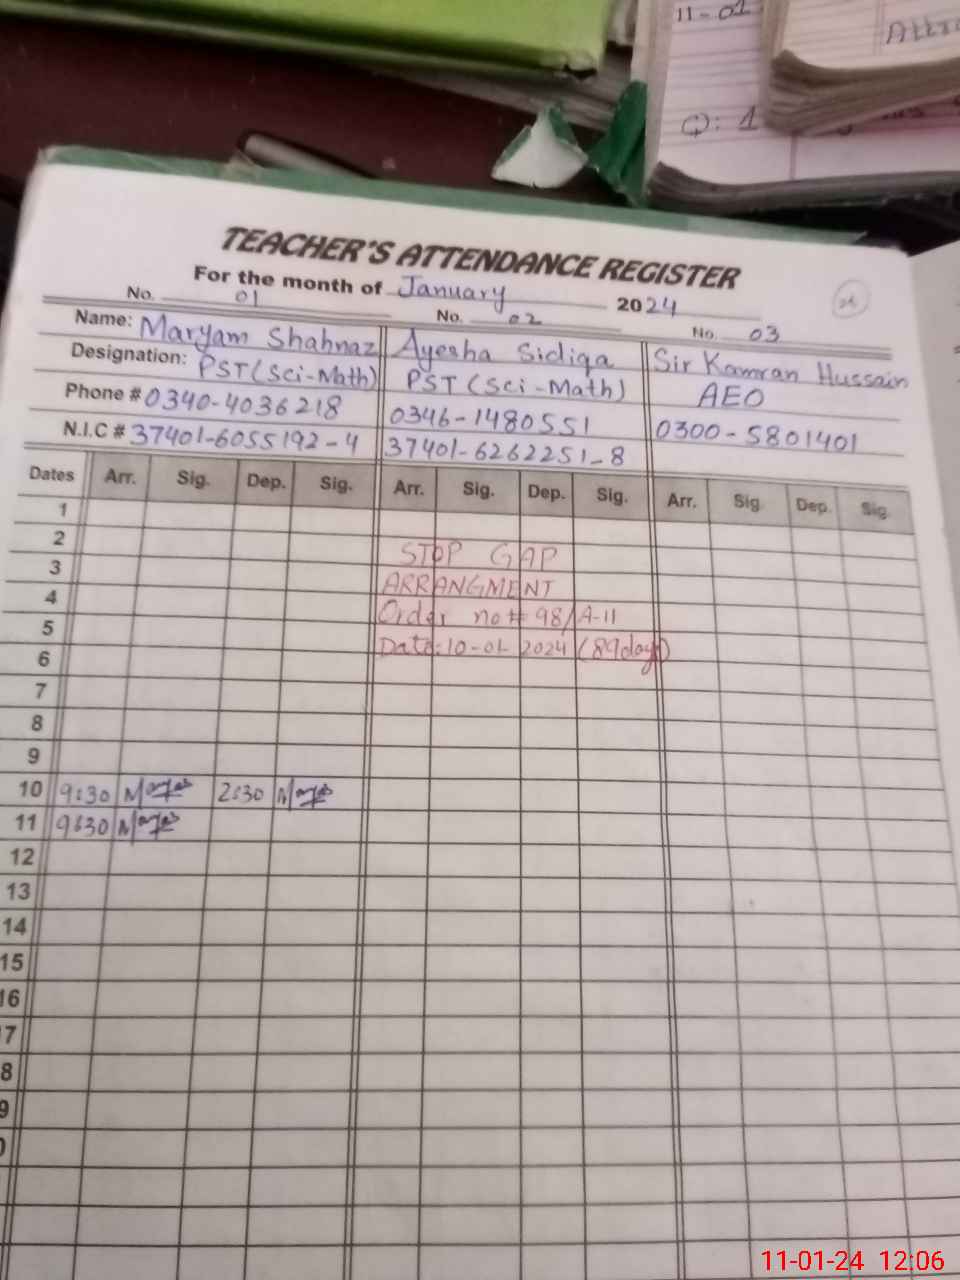 11-01
Q: 1
TEACHER'S ATTENDANCE REGISTER
For the month of January 2024
No. 01 No. 02 No. 03
Name: Maryam Shahnaz Ayesha Sidiqa Sir Kamran Hussain
Designation: PST(Sci-Math) PST (Sci-Math) AEO
Phone # 0340-4036218 0346-1480551 0300-5801401
N.I.C # 37401-6055192-4 37401-6262251-8
Dates Arr. Sig. Dep. Sig. Arr. Sig. Dep. Sig. Arr. Sig. Dep. Sig.
1
2
STOP GAP
3
ARRANGMENT
4
Order no # 98/A-11
5
Date:10-01-2024 (89days)
6
7
8
9
10 9:30 2:30
11 9:30
12
13
14
15
16
7
8
9
11-01-24 12:06